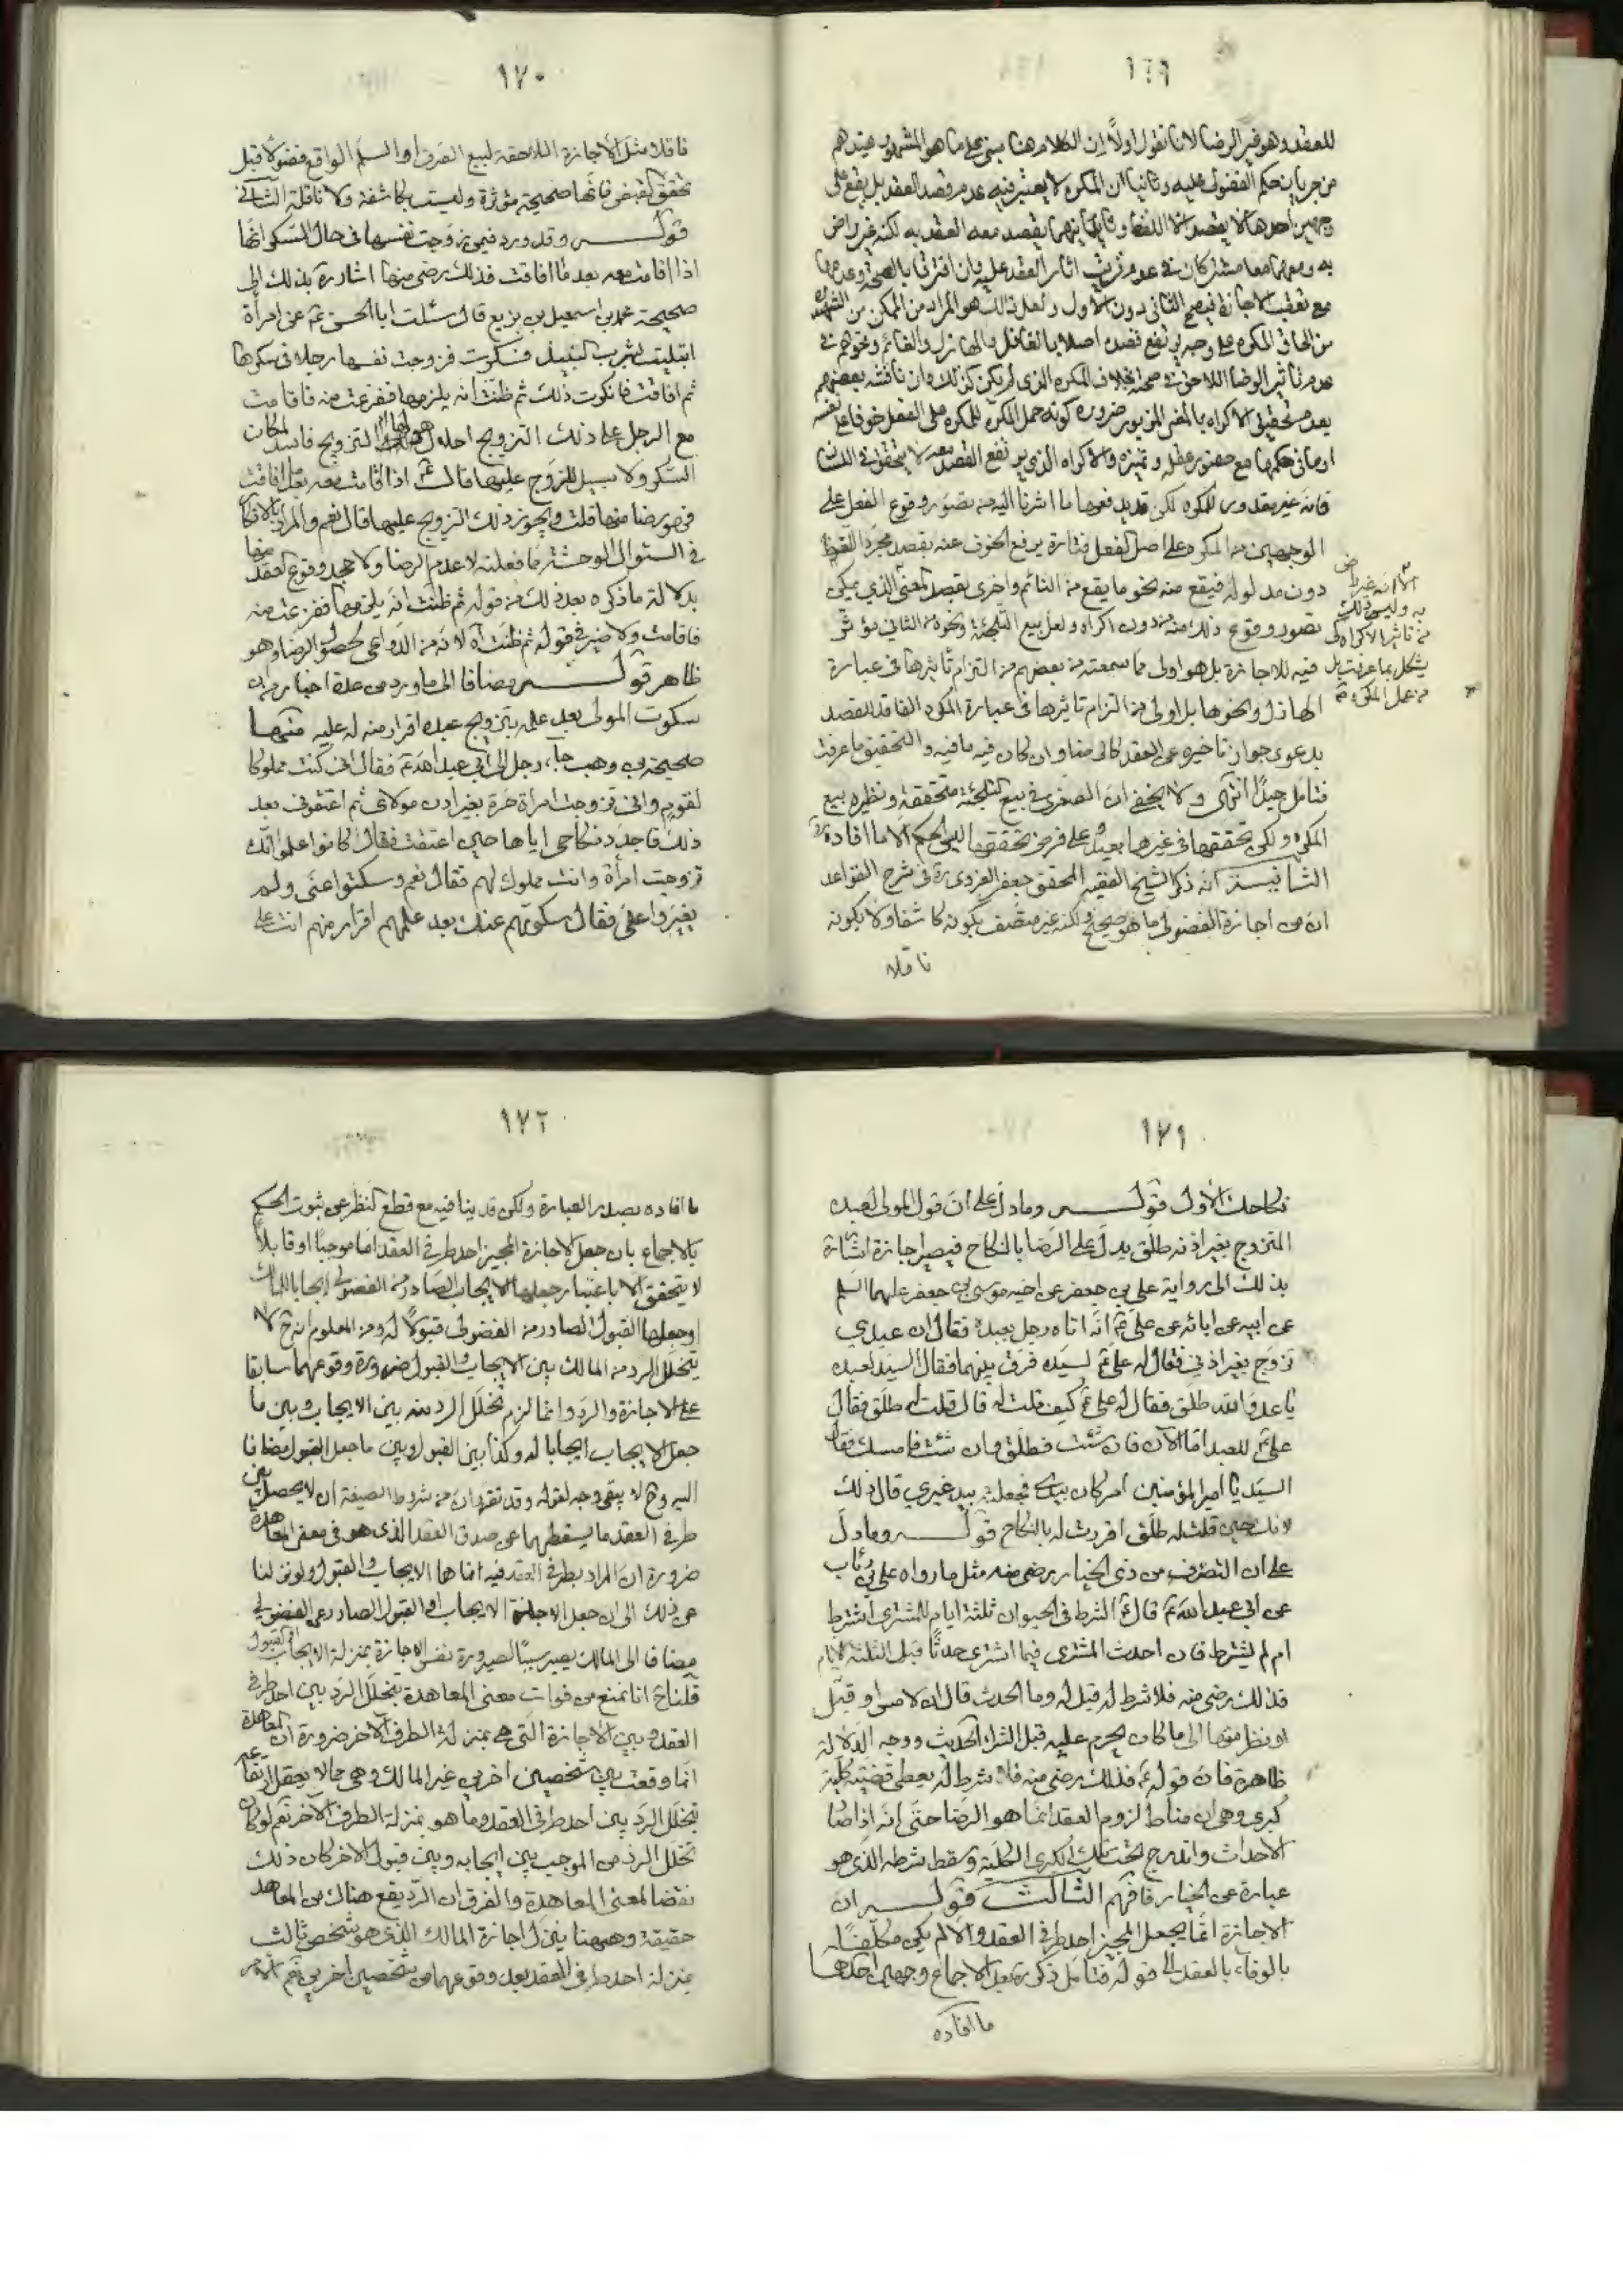 ١٦٩
للعقد وهو غير الرضا لانا نقول اولاً ان الكلام هنا مبني على ما هو المشهور عندهم
من جريان حكم الفضولي عليه وثانيا ان المكره لا يعتبر فيه عدم قصد العقد بل يقع على
وجهين احدهما لا يقصد الا اللفظ وثانيهما يقصد معه العقد به لكنه غير راض
به وهما معا مشتركان في عدم ترتب اثار العقد عليه وان افترقا بالصحة وعدمها
مع تعقب الاجازة فيصح الثاني دون الاول ولعل ذلك هو المراد من المحكي من الشهيد
من الحاق المكره على وجه يرتفع قصده اصلا بالغافل والهازل والنائم ونحوهم في
عدم تاثير الرضا اللاحق في صحته بخلاف المكره الذي لم يكن كذلك وان ناقشه بعضهم
بعدم تحقيق الاكراه بالمعنى المزبور ضرورة كونه حمل المكره للمكره على الفعل خوفا على نفسه
او ما في حكمها مع حضور عقله وتميزه والاكراه الذي يرتفع القصد معه لا يتحقق في اللسان
فانه غير مقدور للمكره لكن قد يدفعها ما اشرنا اليه من تصور وقوع الفعل على
الوجهين من المكره على اصل الفعل فتارة يرفع الخوف عنه بقصد مجرد اللفظ
دون مدلوله فيقع منه نحو ما يقع من النائم واخرى بقصد المعنى الذي يمكن
تصور وقوع ذلك منه من دون اكراه ولعل بيع التلجئة ونحوه من الثاني مؤثر
فيه للاجازة بل هو اولى مما سمعته من بعضهم من التزام تاثيرها في عبارة
الهازل ونحوها بل اولى من التزام تاثيرها في عبارة المكره الفاقد للقصد
بدعوى جواز تاخيره عن العقد كالرضا وان كان فيه ما فيه والتحقيق ما عرفت
فتامل جيداً انتهى ولا يخفى ان الصغرى في بيع التلجئة متحققة ونظيره بيع
المكره ولكن تحققها في غيرهما بعيد وعلى فرض تحققها ليس الحكم الا ما افاده ره
الثاني انه ذكر الشيخ الفقيه المحقق جعفر الغروي ره في شرح القواعد
ان من اجازة الفضولي ما هو صحيح ولكنه غير متصف بكونه كاشفا ولا بكونه
ناقلا
الا انه غير راض
به وليس ذلك
من تاثير الاكراه كي
يشكل بما عرفت بل
من عمل المكره
١٧٠
ناقلا مثل الاجازة اللاحقة لبيع الصرف او السلم الواقع فضولا قبل
تحقق القبض فانها صحيحة مؤثرة وليست بكاشفة ولا ناقلة الثالث
قوله وقد ورد فيمن زوجت نفسها في حال السكر انها
اذا اقامت معه بعد ما افاقت فذلك رضى منها اشار ره بذلك الى
صحيحة محمد بن اسمعيل بن بزيع قال سئلت ابا الحسن ع عن امرأة
ابتليت بشرب النبيذ فسكرت فزوجت نفسها رجلا في سكرها
ثم افاقت فانكرت ذلك ثم ظنت انه يلزمها ففزعت منه فاقامت
مع الرجل على ذلك التزويج احلال هو لها ام التزويج فاسد لمكان
السكر ولا سبيل للزوج عليها قال ع اذا اقامت معه بعد ما افاقت
فهو رضا منها قلت ويجوز ذلك التزويج عليها قال نعم والمراد بالانكار
في السؤال الوحشة مما فعلته لا عدم الرضا ولا جحد وقوع العقد منها
بدلالة ما ذكره بعد ذلك من قوله ثم ظنت انه يلزمها ففزعت منه
فاقامت ولا ضير في قوله ثم ظنت اه لانه من الدواعي لحصول الرضا وهو
ظاهر قوله مضافا الى ما ورد في عدة اخبار من ان
سكوت المولى بعد علمه بتزويج عبده اقرار منه له عليه منها
صحيحة بن وهب جاء رجل الى ابي عبد الله ع فقال اني كنت مملوكا
لقوم واني تزوجت امراة حرة بغير اذن مولاي ثم اعتقوني بعد
ذلك فاجدد نكاحي اياها حين اعتقت فقال كانوا علموا انك
تزوجت امرأة وانت مملوك لهم فقال نعم وسكتوا عني ولم
يغيروا علي فقال سكوتهم عنك بعد علمهم اقرار منهم انت على
١٧١
نكاحك الأول قوله وما دل على ان قول المولى لعبده
المتزوج بغير اذنه طلق يدل على الرضا بالنكاح فيصير اجازة اشارة
بذلك الى رواية علي بن جعفر عن اخيه موسى بن جعفر عليهما السلم
عن ابيه عن ابائه عن علي ع انه اتاه رجل بعبده فقال ان عبدي
تزوج بغير اذني فقال له علي ع لسيده فرق بينهما فقال السيد لعبده
يا عدو الله طلق فقال له علي ع كيف قلت له قال قلت له طلق فقال
علي ع للعبد اما الآن فان شئت فطلق وان شئت فامسك فقال
السيد يا امير المؤمنين امر كان بيدي فجعلته بيد غيري قال ذلك
لانك حين قلت له طلق اقررت له بالنكاح قوله وما دل
على ان التصرف من ذي الخيار رضى منه مثل ما رواه علي بن رئاب
عن ابي عبد الله ع قال ع الشرط في الحيوان ثلثة ايام للمشتري اشترط
ام لم يشترط فان احدث المشتري فيما اشترى حدثاً قبل الثلثة الايام
فذلك رضى منه فلا شرط له قيل له وما الحدث قال ان لامس او قبل
او نظر منها الى ما كان يحرم عليه قبل الشراء الحديث ووجه الدلالة
ظاهرة فان قوله ع فذلك رضى منه فلا شرط له يعطي قضية كلية
كبرى وهي ان مناط لزوم العقد انما هو الرضا حتى انه اذا صار
الاحداث واندرج تحت تلك الكبرى الكلية وسقط شرطه الذي هو
عبارة عن الخيار فافهم الثالث قوله ان
الاجازة انما يجعل المجيز احد طرفي العقد والا لم يكن مكلفاً
بالوفاء بالعقد الى قوله فتامل ذكر ره بعد الاجماع وجهين احدهما
ما افاده
١٧٢
ما افاده بصدر العبارة ولكن قد يناقش فيه مع قطع النظر عن ثبوت الحكم
بالاجماع بان جعل الاجازة المجيز احد طرفي العقد اما موجباً او قابلاً
لا يتحقق الا باعتبار جعلها الايجاب الصادر من الفضولي ايجابا للمالك
او جعلها القبول الصادر من الفضولي قبولاً له ومن المعلوم انه ح لا
يتخلل الرد من المالك بين الايجاب والقبول ضرورة وقوعهما سابقا
على الاجازة والرد وانما لزم تخلل الرد منه بين الايجاب وبين ما
جعل الايجاب ايجابا له وكذا بين القبول وبين ما جعل القبول مضافا
اليه وح لا يبقى وجه لقوله وقد تقرر ان من شروط الصيغة ان لا يحصل بين
طرفي العقد ما يسقطهما عن صدق العقد الذي هو في معنى المعاهدة
ضرورة ان المراد بطرفي العقد فيه انما هما الايجاب والقبول ولو نزلنا
عن ذلك الى ان جعل الاجازة الايجاب او القبول الصادر عن الفضولي
مضافا الى المالك يصير سبباً لصيرورة نفس الاجازة بمنزلة الايجاب او القبول
قلنا ح انا نمنع من فوات معنى المعاهدة بتخلل الرد بين احد طرفي
العقد وبين الاجازة التي هي بمنزلة الطرف الآخر ضرورة ان المعاهدة
انما وقعت بين شخصين اخرين غير المالك وهي مما لا يعقل ارتفاعه
بتخلل الرد بين احد طرفي العقد وما هو بمنزلة الطرف الآخر نعم لو كان
تخلل الرد من الموجب بين ايجابه وبين قبول الاخر كان ذلك
نقضا لمعنى المعاهدة والفرق ان الرد يقع هناك من المعاهد
حقيقة وهيهنا ينزل اجازة المالك الذي هو شخص ثالث
منزلة احد طرفي العقد بعد وقوعهما من شخصين اخرين نعم